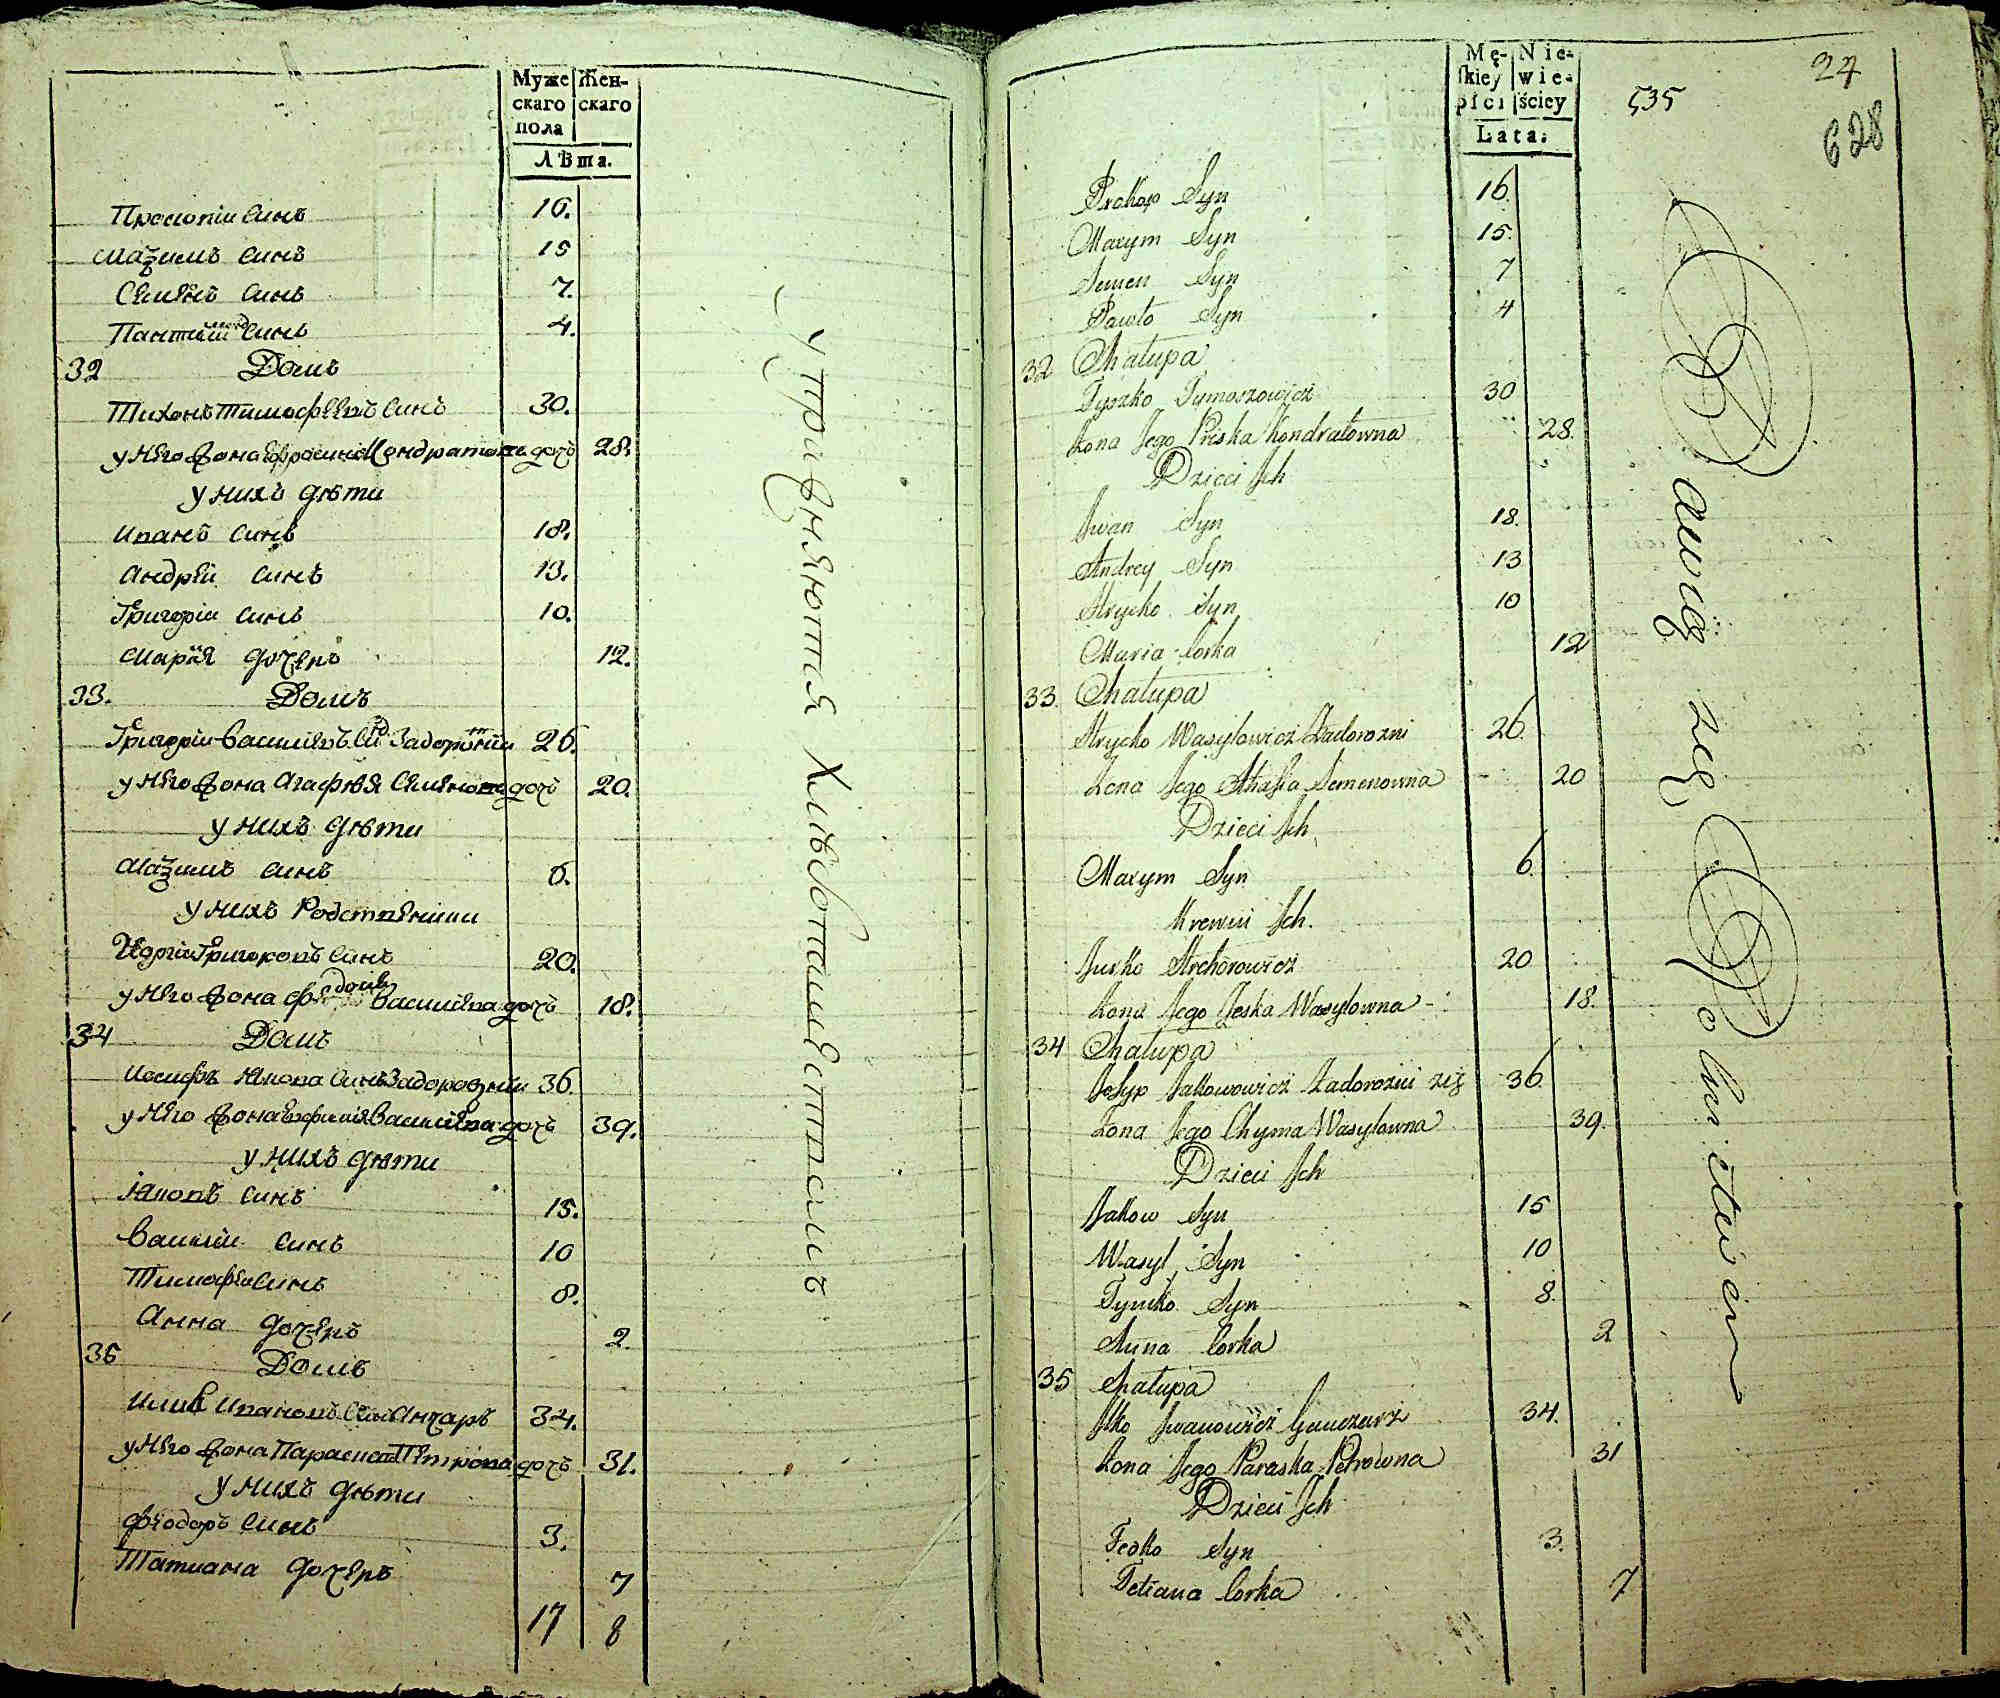 Муже Жен-
скаго скаго
пола
Лѣта.
Прокопій Синъ 16.
Маѯимъ Синъ 15
Семенъ Синъ 7.
Синъ 4.
32 Домъ
Тихонъ Тимофеевъ Синъ 30.
у него жона Ефросиниа Кондратова дочь 28.
у нихъ дѣти
Иванъ Синъ 18.
Андрей Синъ 13.
Григорій Синъ 10.
Марія дочерь 12.
33. Домъ
Григорій Василевъ Синъ Задорожній 26.
у него жона Агафѣя Семенова дочь 20.
у нихъ дѣти
Маѯимъ Синъ 6.
у нихъ Родственики
Георгій Григоровъ Синъ 20.
у него жона Василева дочь 18.
34 Домъ
Иосифъ Яковв Синъ Задорожній 36.
у него жона Ефимия Василева дочь 39.
у нихъ дѣти
Яковъ Синъ 15.
Василій Синъ 10
Тимофей Синъ 8.
Анна дочерь 2.
35 Домъ
Илия Ивановъ Синъ Ганчаръ 34.
у него жона Параскева Петрова дочь 31.
у нихъ дѣти
Феодоръ Синъ 3.
Татиана дочерь 7
17 8
Упражняются Хлѣбопашествомъ
Mę- Nie-
skiey wie-
płci ściey
Lata.
535
27
628
Prokop Syn 16.
Maxym Syn 15.
Semen Syn 7
Pawło Syn 4
32 Chałupa
Tyszko Tymoszowicz 30
Żona Jego Priska Kondratowna 28.
Dzieci Ich
Iwan Syn 18.
Andrey Syn 13
Hrycko Syn 10
Maria Corka 12
33 Chałupa
Hrycko Wasylowicz Zadorozni 26.
Żona Jego Ahafia Semenowna 20
Dzieci Ich
Maxym Syn 6.
Krewni Ich.
Jurko Hrehorowicz 20
Żona Jego Wasylowna 18.
34 Chałupa
Josyp Jakowowicz Zadorozni 36.
Żona Jego Chyma Wasylowna 39.
Dzieci Ich
Jakow Syn 15
Wasyl Syn 10
Tymko Syn 8.
Anna Corka 2
35 Chałupa
Ilko Iwanowicz Ganczarz 34.
Żona Jego Paraska Petrowna 31
Dzieci Ich
Fedko Syn 3.
Tetiana Corka 7
Bawią się Rolnictwem